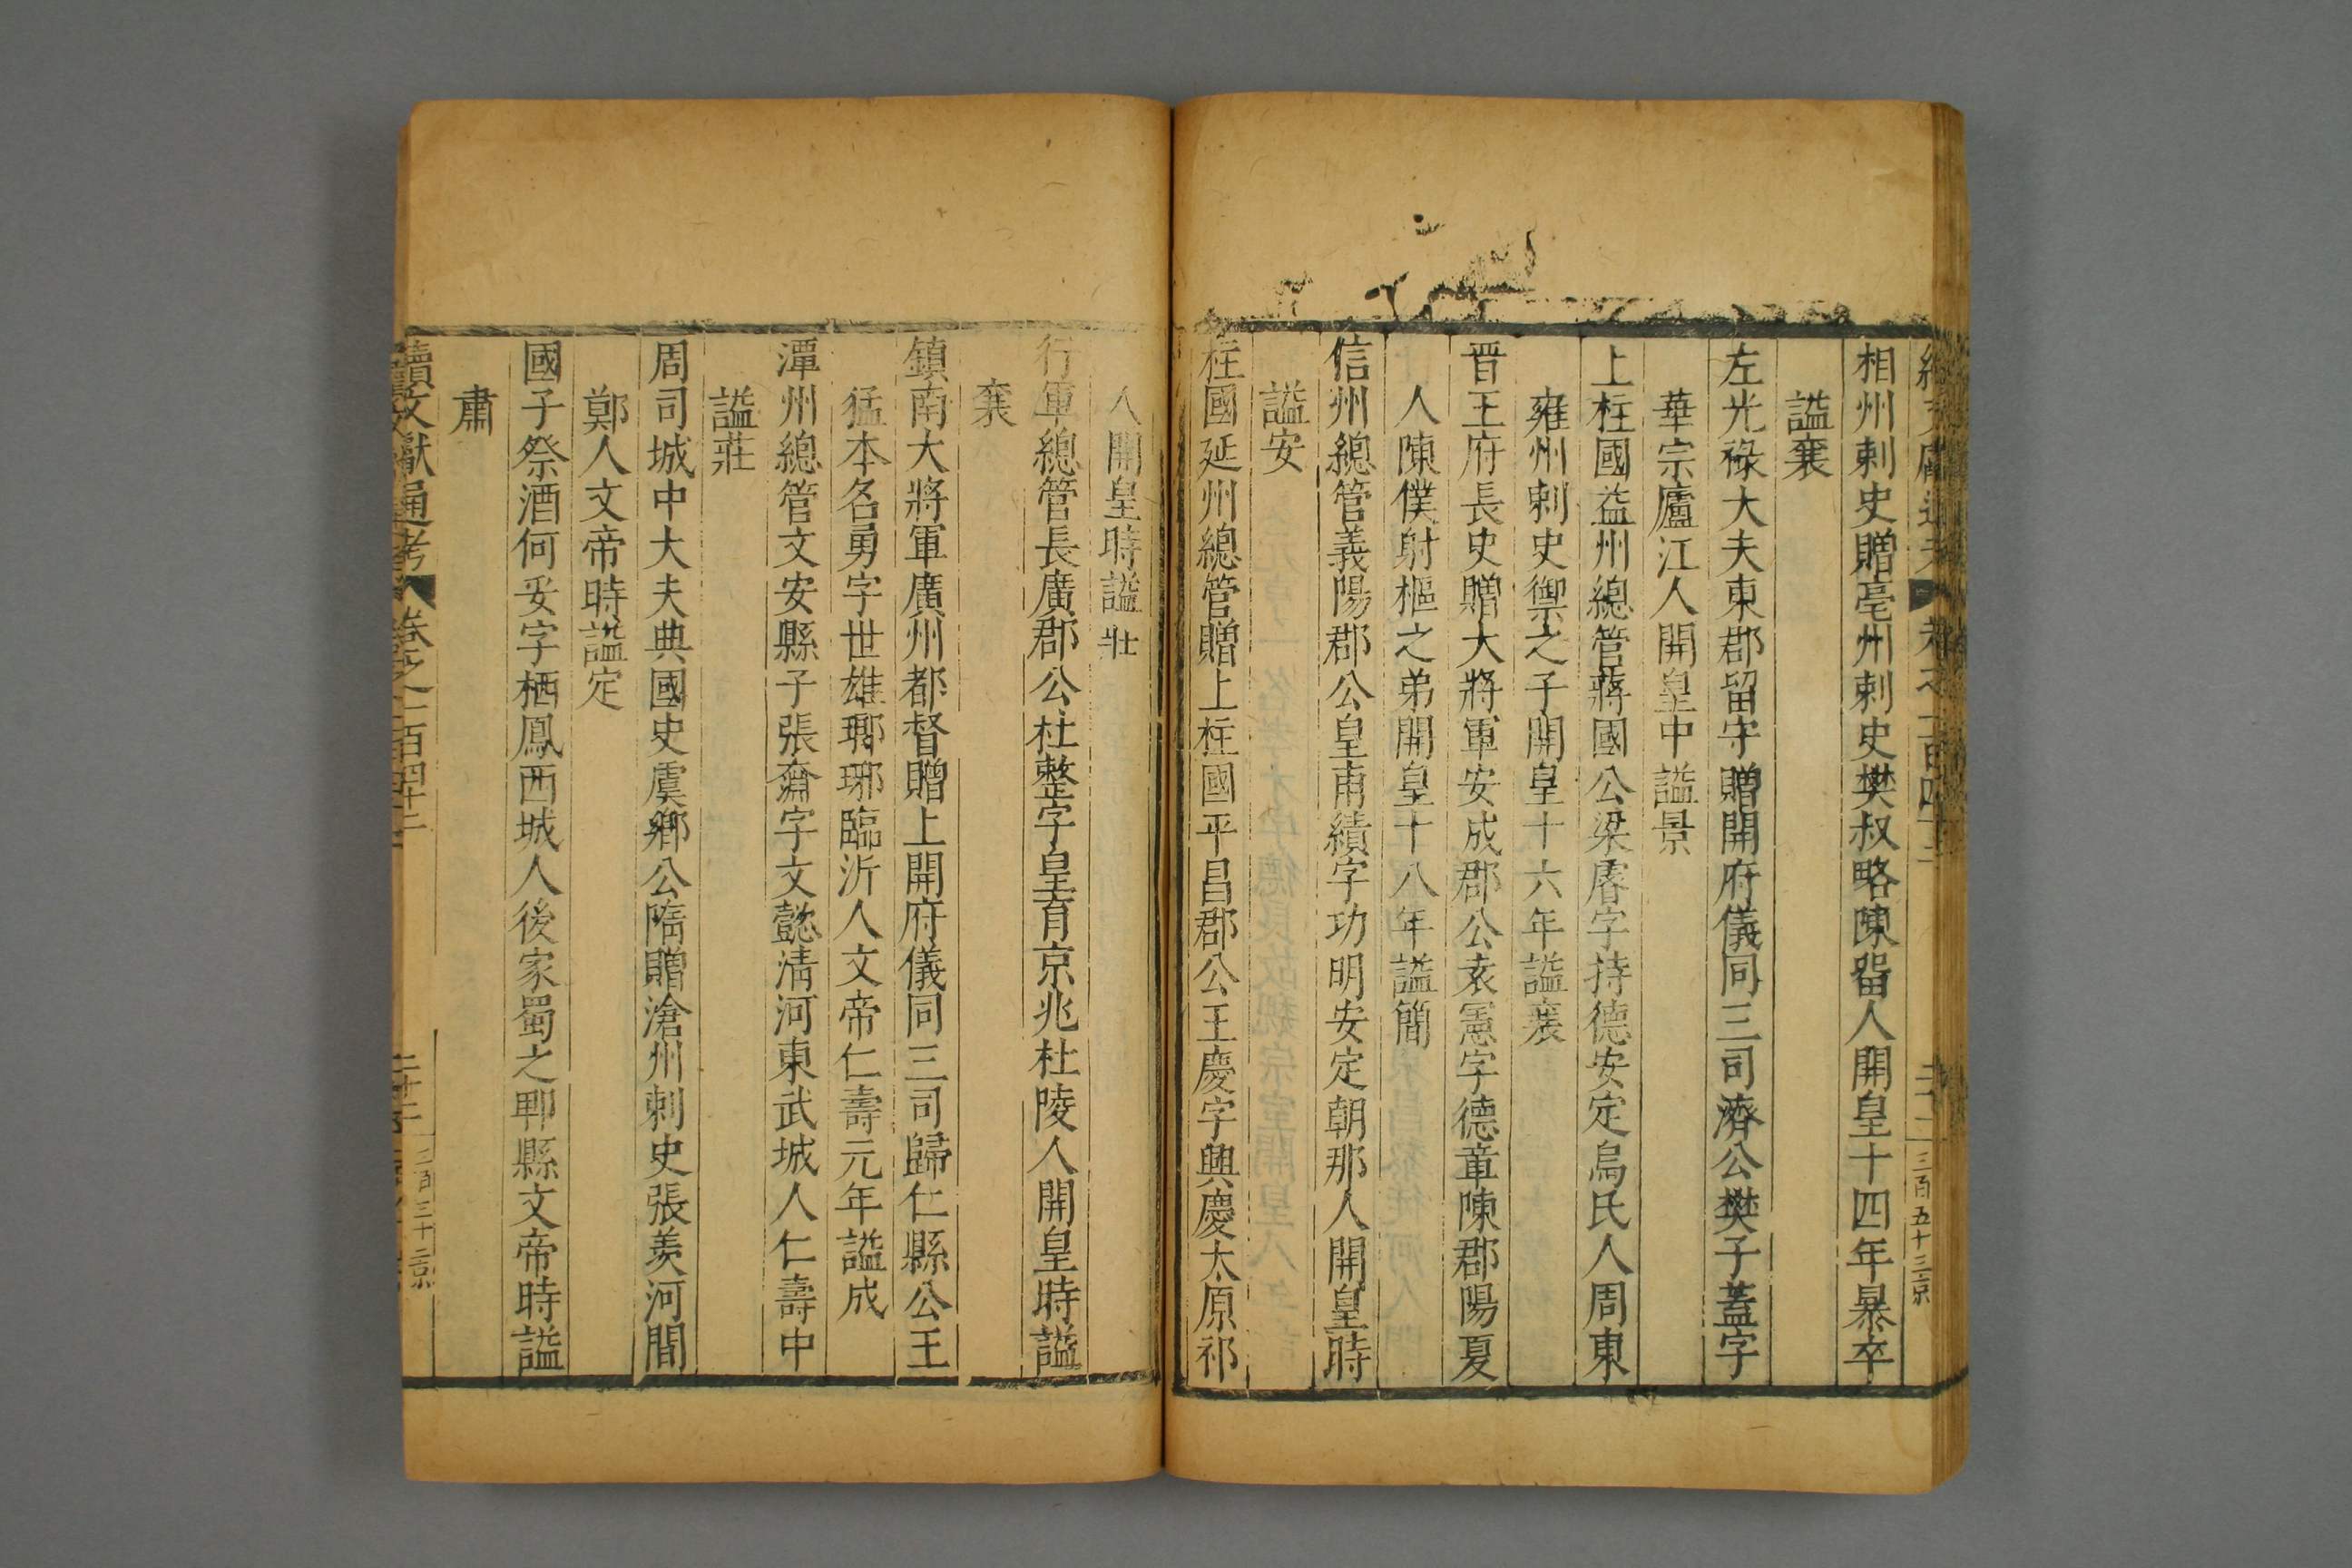 相州刺史贈亳州刺史樊叔略陳留人開皇十四年暴卒
謚襄
左光祿大夫東郡留守贈開府儀同三司濟公樊子蓋字
華宗廬江人開皇中謚景
上柱國益州總管蔣國公梁睿字持德安定烏氏人周東
雍州刺史禦之子開皇十六年謚襄
晋王府長史贈大將軍安成郡公袁憲字德章陳郡陽夏
人陳僕射樞之弟開皇十八年謚簡
信州總管義陽郡公皇甫績字功明安定朝那人開皇時
謚安
柱國延州總管贈上柱國平昌郡公王慶字興慶太原祁
人開皇時謚壯
行軍總管長廣郡公杜整字皇育京兆杜陵人開皇時謚
襄
鎮南大將軍廣州都督贈上開府儀同三司歸仁縣公王
猛本名勇字世雄瑯琊臨沂人文帝仁壽元年謚成
潭州總管文安縣子張奫字文懿清河東武城人仁壽中
謚莊
周司城中大夫典國史虞鄉公隋贈滄州刺史張羨河間
鄭人文帝時謚定
國子祭酒何妥字栖鳳西城人後家蜀之郫縣文帝時謚
肅
續文獻通考 卷之一百四十二 二十二 三百三十二 京